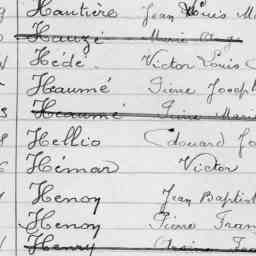 Hautière Jean Louis Ma
Hauzé Marie Ange
Hédé. Victor Louis
Heaumé Pierre Joseph
Heaumé Pierre Marie
Hellio Edouard Jo
Hémar Victor
Henoy Jean Baptist
Henoy Pierre Fran
Henry